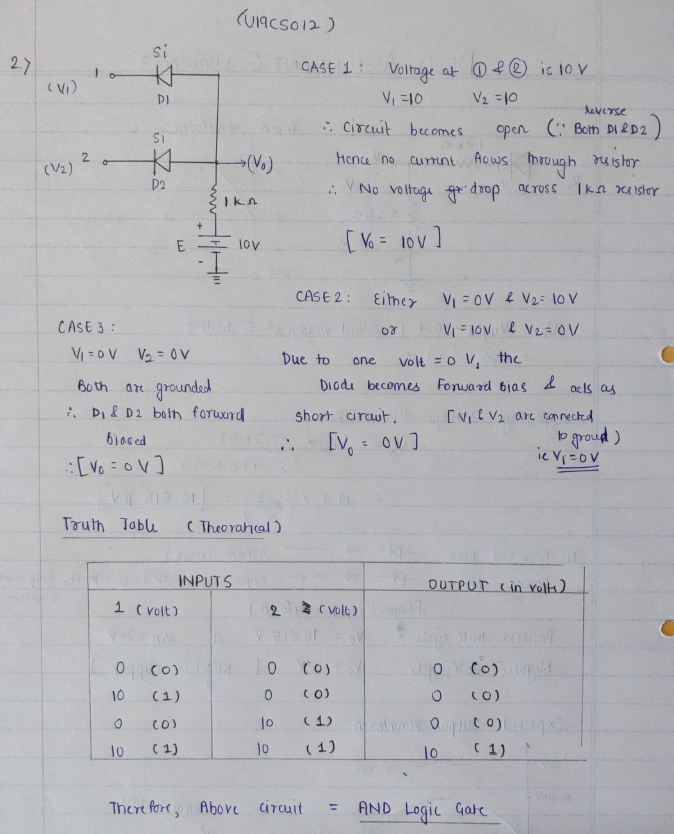 (U19CS012)
2.)
Si
1
(V1)
D1
Si
(V2) 2
D2
→(Vo)
1kΩ
+
E
10V
-
CASE 1 : Voltage at ① & ② is 10V
V1 =10 V2 =10
reverse
∴ Circuit becomes open (∵ Both D1&D2)
Hence no current flows through resistor
∴ No voltage drop across 1kΩ resistor
[ Vo = 10V ]
CASE 2 : Either V1 = 0V & V2= 10V
or V1 = 10V & V2= 0V
Due to one volt = 0 V, the
Diode becomes Forward bias & acts as
short circuit. [ V1 & V2 are connected
to groud )
ie V1 = 0V
∴ [Vo = 0V ]
CASE 3 :
V1 = 0V V2 = 0V
Both are grounded
∴ D1 & D2 both forward
biased
∴ [ Vo = 0V ]
Truth Table ( Theoratical )
INPUTS OUTPUT (in volts)
1 (volt) 2 (volt)
0 (0) 0 (0) 0 (0)
10 (1) 0 (0) 0 (0)
0 (0) 10 (1) 0 (0)
10 (1) 10 (1) 10 (1)
Therefore, Above circuit = AND Logic Gate